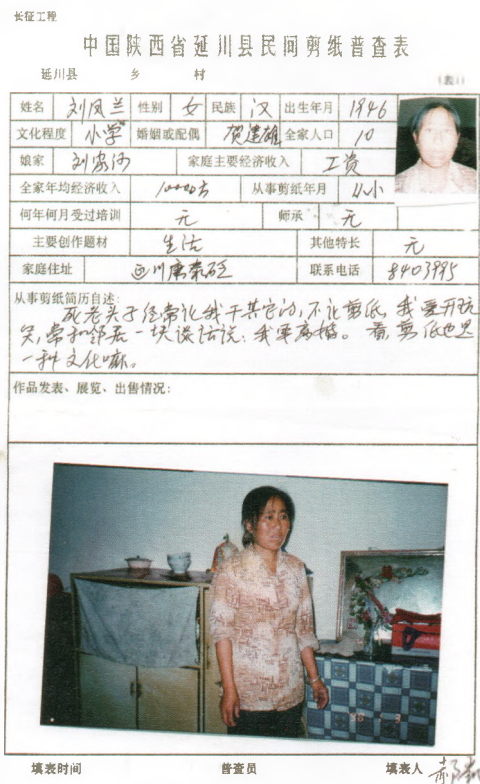 长征工程
中国陕西省延川县民间剪纸普查表
延川县 乡 村 (表1)
姓名 刘凤兰 性别 女 民族 汉 出生年月 1946
文化程度 小学 婚姻或配偶 贺建雄 全家人口 10
娘家 刘家沟 家庭主要经济收入 工资
全家年均经济收入 10000元 从事剪纸年月 从小
何年何月受过培训 无 师承 无
主要创作题材 生活 其他特长 无
家庭住址 延川 联系电话 8403995
从事剪纸简历自述:
死老头子经常让我干其它的,不让剪纸,我爱开玩
笑,常和邻居一块谈话说:我要离婚。看,剪纸也是
一种文化嘛。
作品发表、展览、出售情况:
填表时间 普查员 填表人